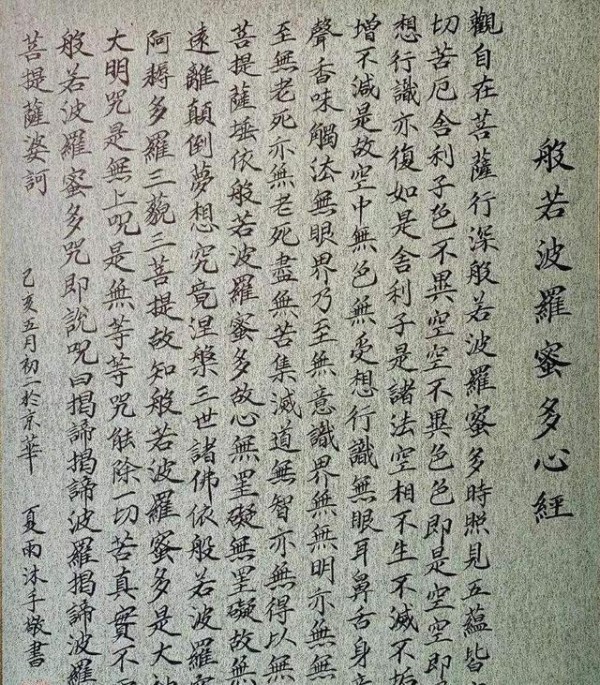 般若波羅蜜多心經
觀自在菩薩行深般若波羅蜜多時照見五蘊皆
切苦厄舍利子色不異空空不異色色即是空空即
想行識亦復如是舍利子是諸法空相不生不滅不垢
增不減是故空中無色無受想行識無眼耳鼻舌身意
聲香味觸法無眼界乃至無意識界無無明亦無無
至無老死亦無老死盡無苦集滅道無智亦無得以無
菩提薩埵依般若波羅蜜多故心無罣礙無罣礙故無
遠離顛倒夢想究竟涅槃三世諸佛依般若波羅
阿耨多羅三藐三菩提故知般若波羅蜜多是大
大明咒是無上咒是無等等咒能除一切苦真實不
般若波羅蜜多咒即說咒曰揭諦揭諦波羅揭諦波羅
菩提薩婆訶
乙亥五月初一於京華 夏雨沐手敬書